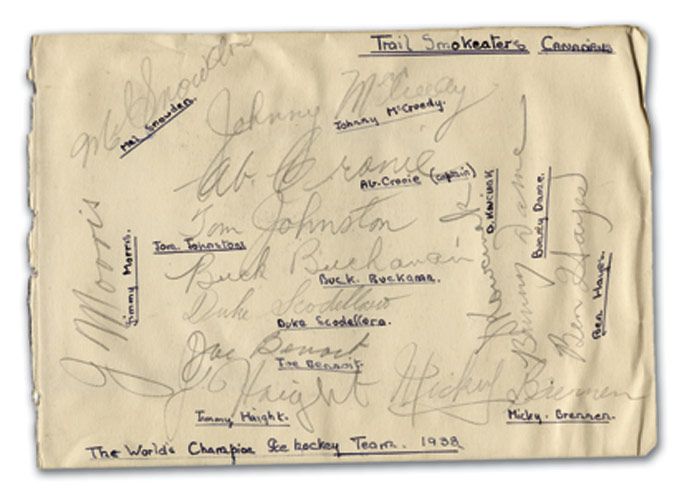 Trail Smokeaters Canadians
Mel Snowdon
Mel Snowdon.
Johnny McCreedy
Johnny McCreedy.
Ab. Cronie
Ab. Cronie (captain)
Tom Johnston
Tom. Johnstone
Buck Buchanan
Buck. Buckama.
Duke Scodellaro
Duke Scodellero.
Joe Benoit
Joe Bennoit.
J Haight
Jimmy Haight.
J Morris
Jimmy Morris.
D. Kowcinak
Bunny Dame
Bunny Dame.
Ben Hayes
Ben Hayes.
Mickey Brennen
Micky. Brennen.
The World's Champion Ice hockey Team. 1938